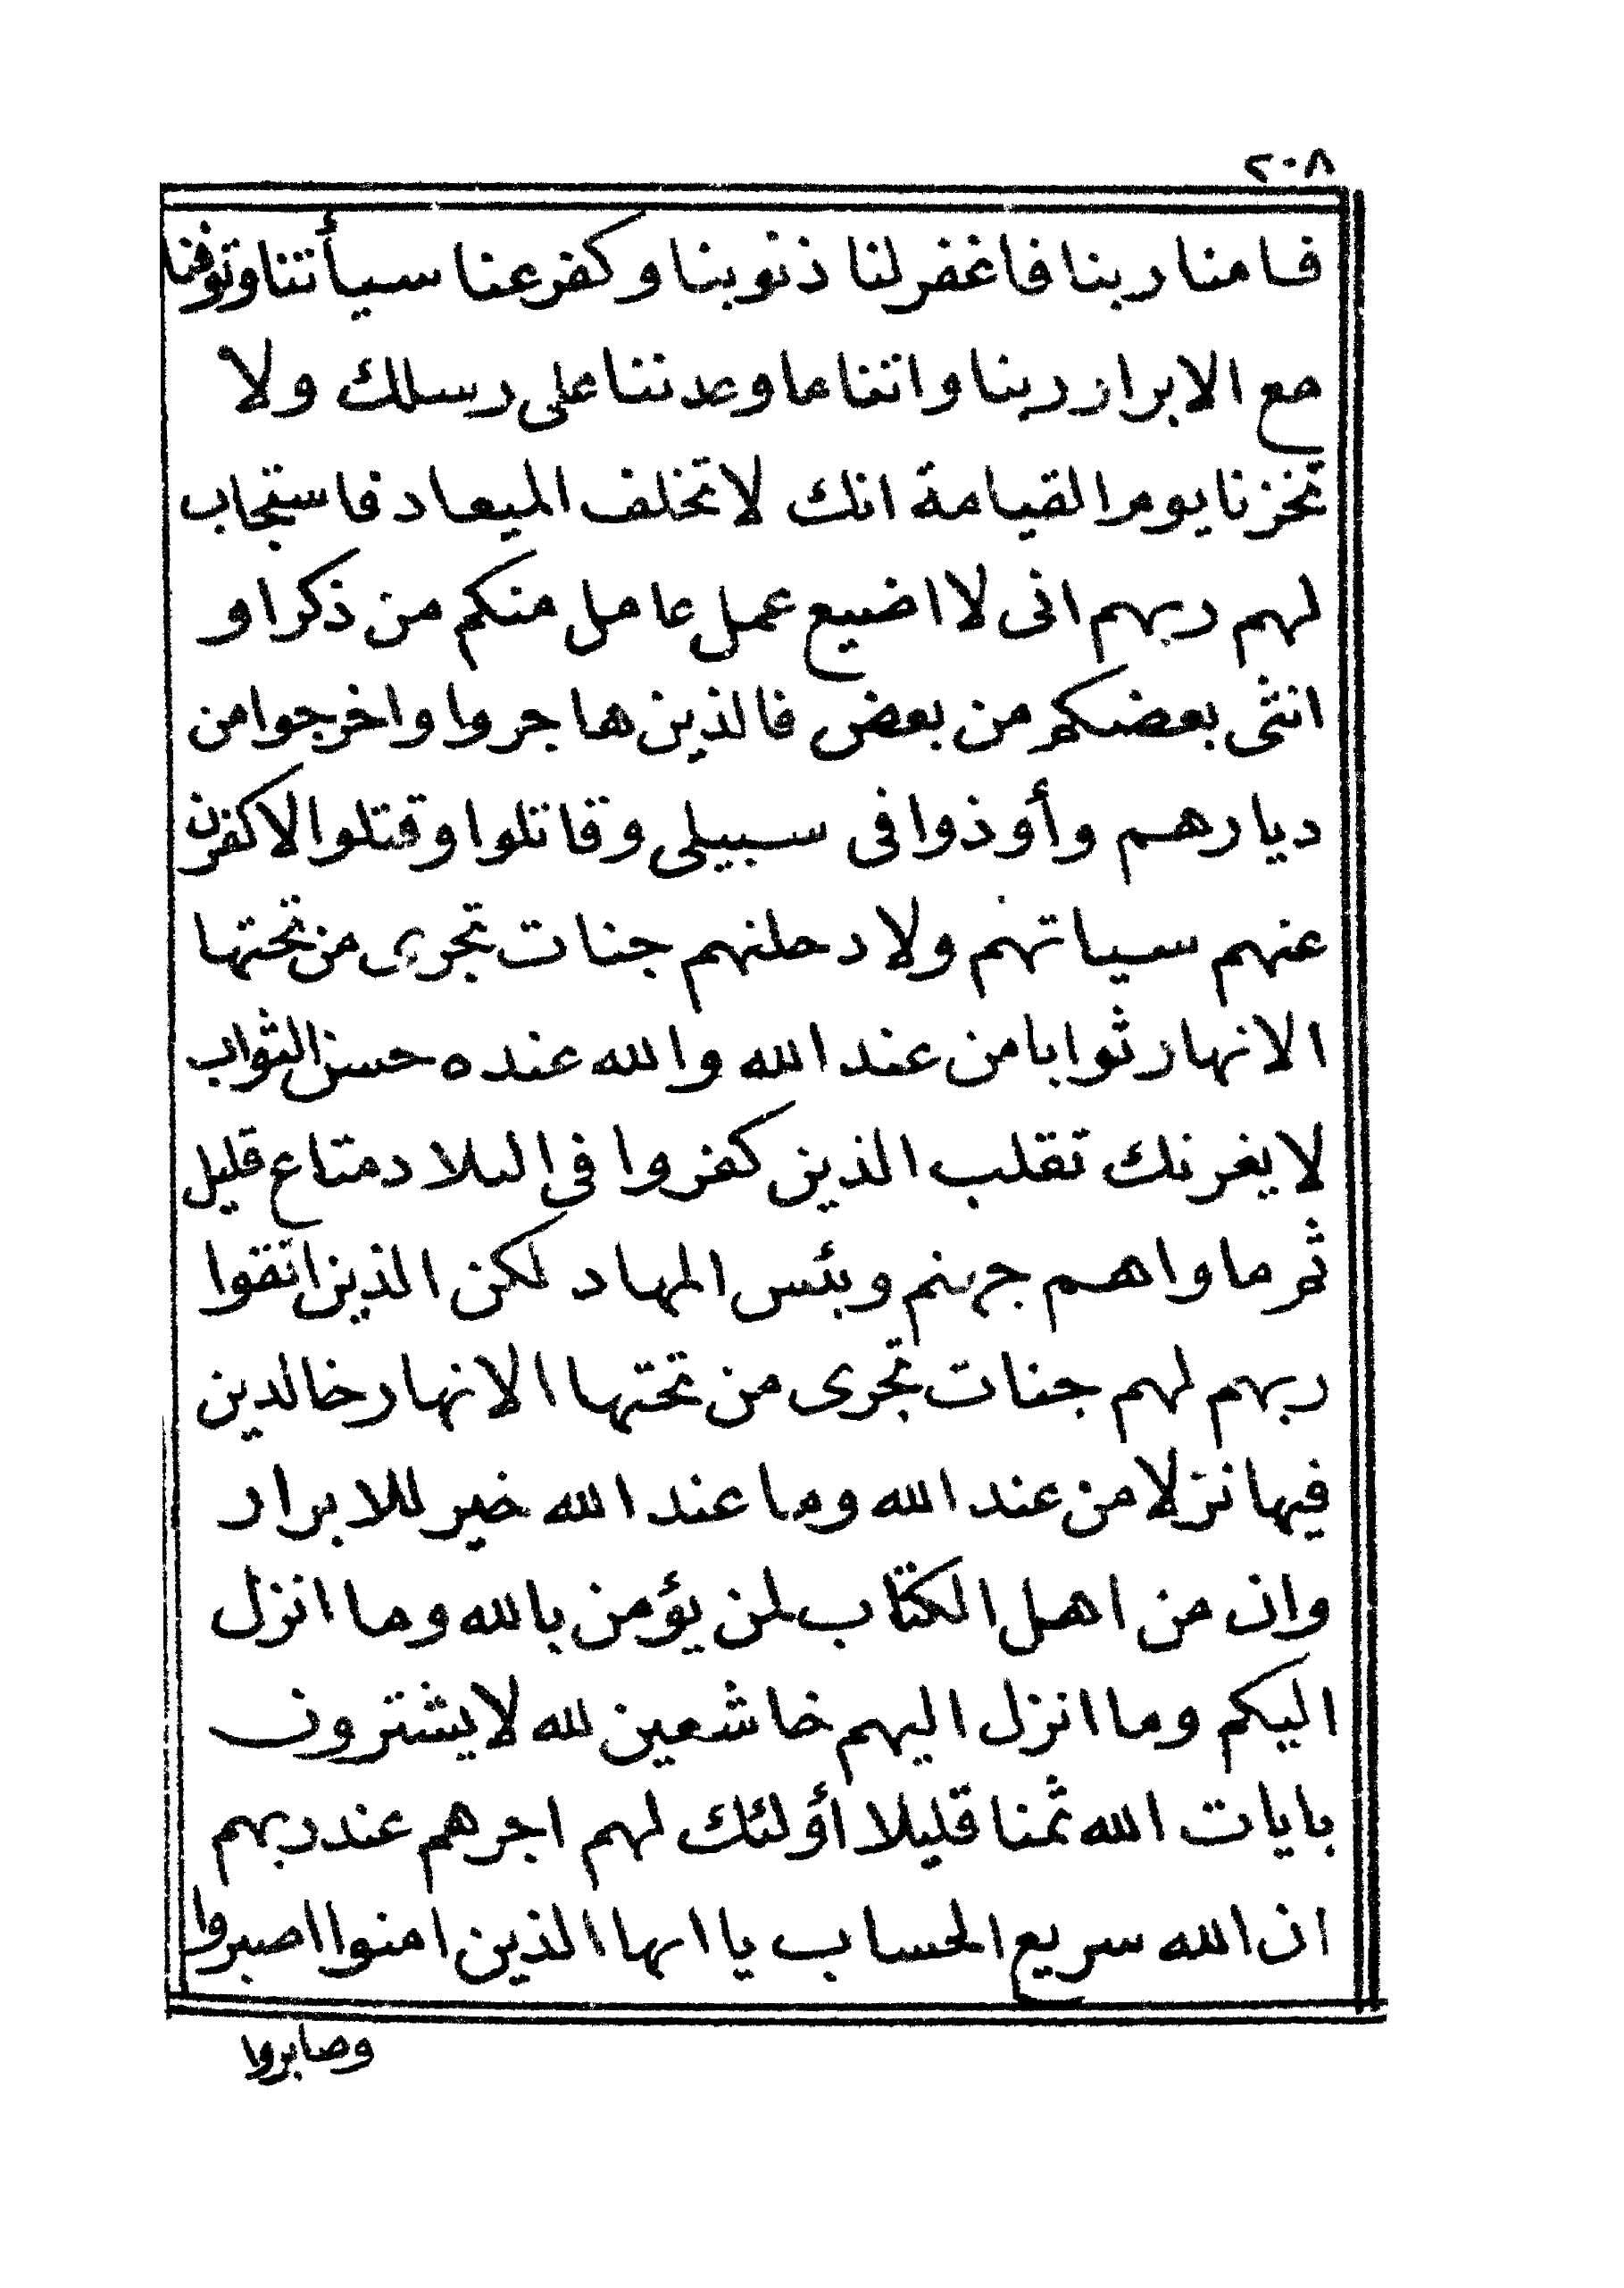 ٢٠٨
فامنا ربنا فاغفر لنا ذنوبنا وكفر عنا سيأتنا وتوفنا
مع الابرار ربنا واتنا ما وعدتنا على رسلك ولا
تخزنا يوم القيامة انك لا تخلف الميعاد فاستجاب
لهم ربهم انى لا اضيع عمل عامل منكم من ذكر او
انثى بعضكم من بعض فالذين هاجروا واخرجوا من
ديارهم وأوذوا فى سبيلى وقاتلوا وقتلوا لاكفرن
عنهم سياتهم ولادخلنهم جنات تجرى من تحتها
الانهار ثوابا من عند الله والله عنده حسن الثواب
لا يغرنك تقلب الذين كفروا فى البلاد متاع قليل
ثم ماواهم جهنم وبئس المهاد لكن الذين اتقوا
ربهم لهم جنات تجرى من تحتها الانهار خالدين
فيها نزلا من عند الله وما عند الله خير للابرار
وان من اهل الكتاب لمن يؤمن بالله وما انزل
اليكم وما انزل اليهم خاشعين لله لا يشترون
بايات الله ثمنا قليلا اؤلئك لهم اجرهم عند ربهم
ان الله سريع الحساب يا ايها الذين امنوا اصبروا
وصابروا